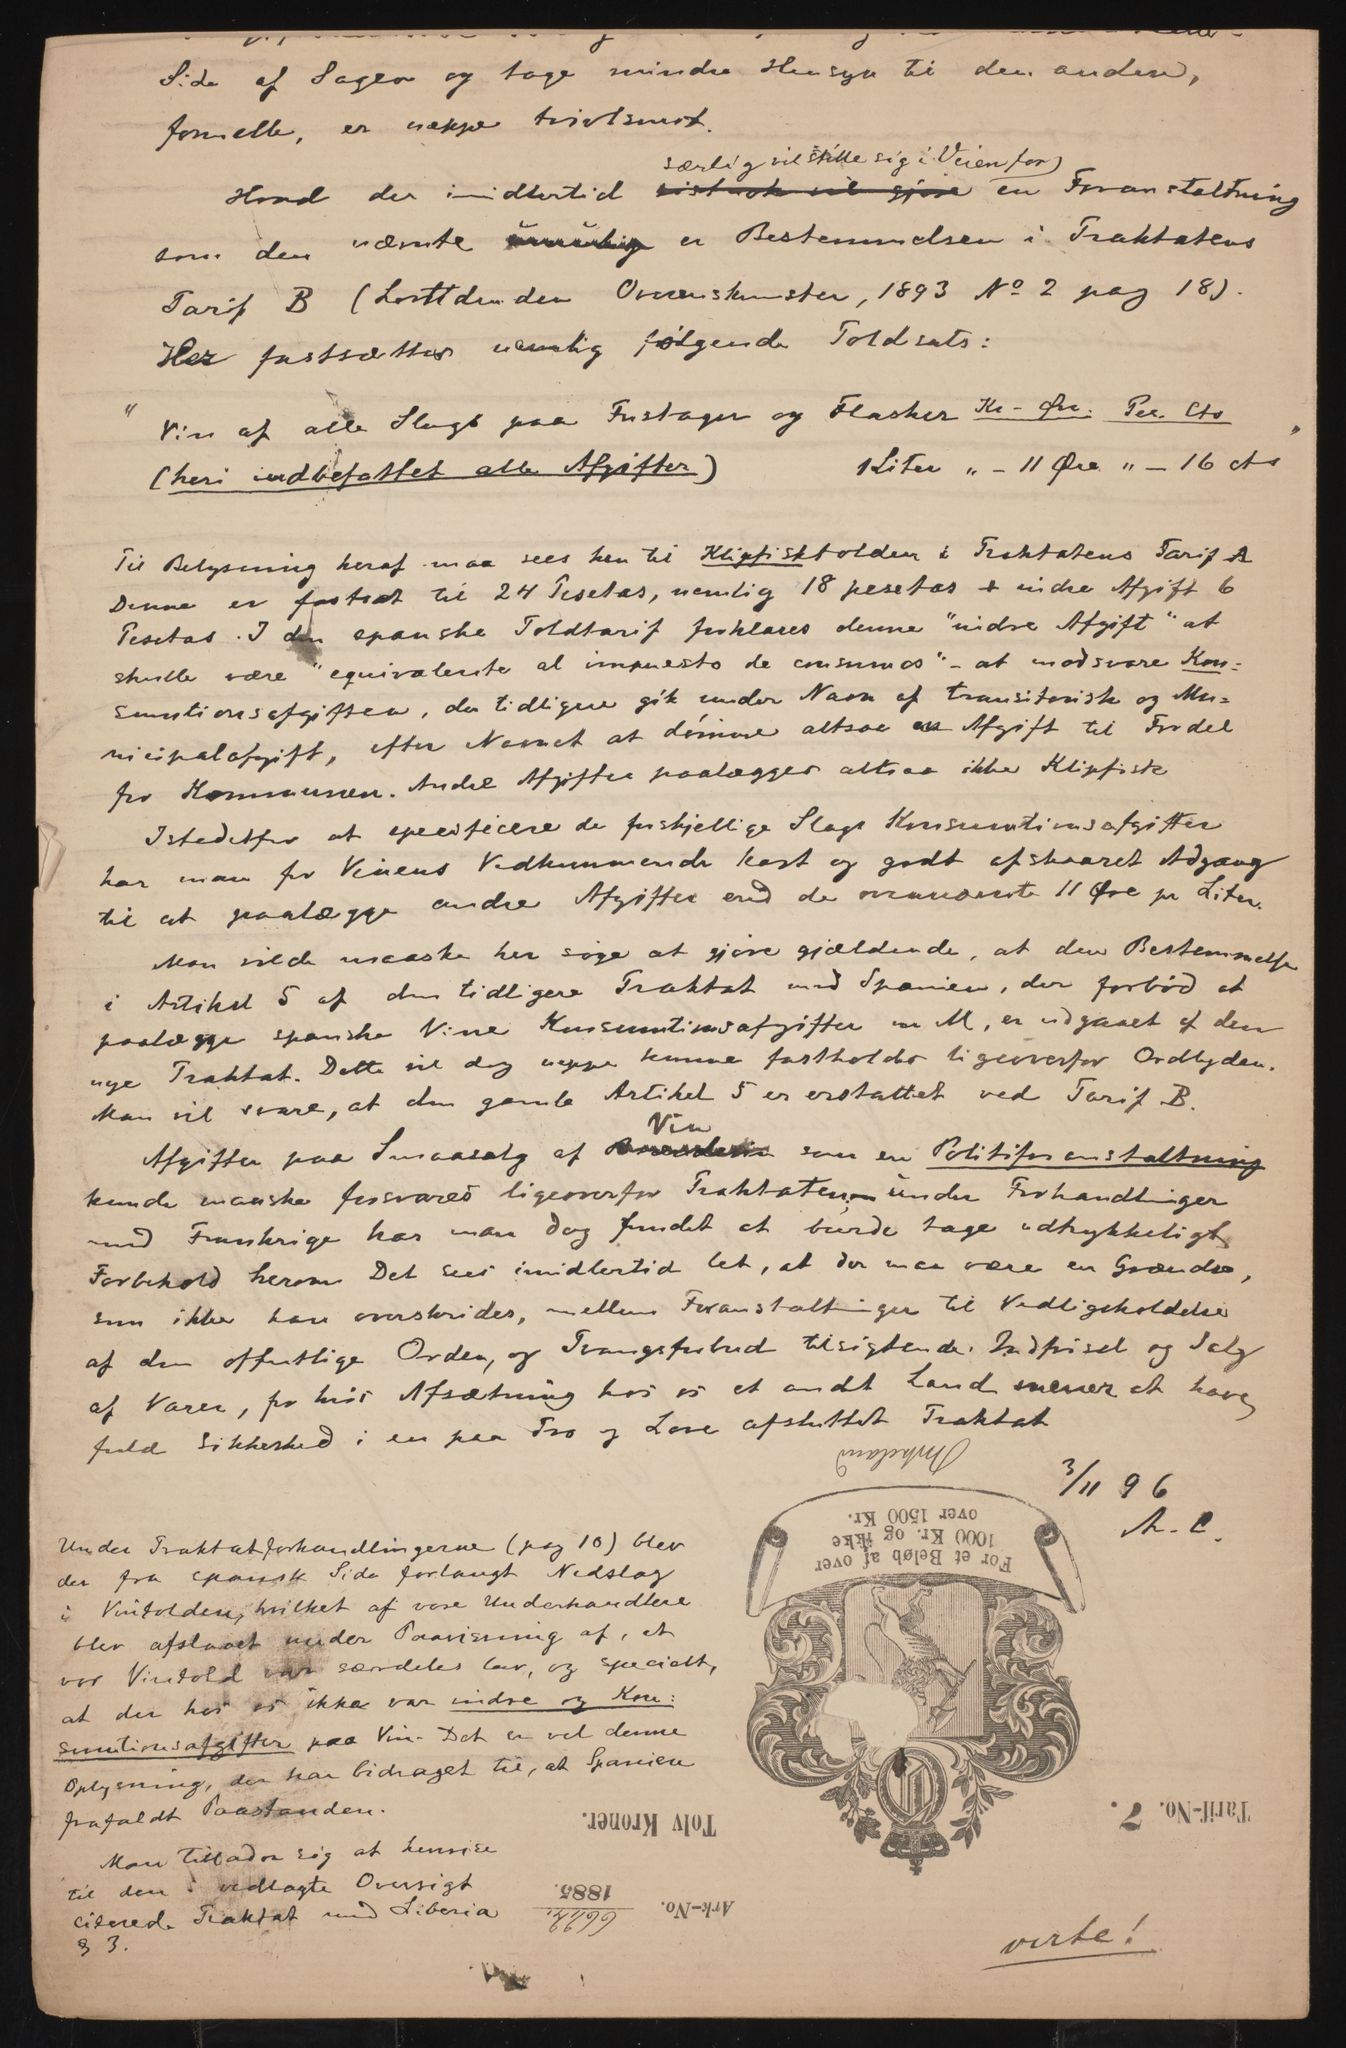 Side af Sagen og tage mindre Hensyn til den anden,
formelle, er neppe tvivlsomt.
særlig vil stille sig i Veien for
Hvad der imidlertid vil gjøre en Foranstaltning
som den nævnte umulig er Bestemmelsen i Traktatens
Tarif B (Overenskomster, 1893 No 2 pag 18).
Her fastsættes nemlig følgende Toldsats:
" Vin af alle Slags paa Fustager og Flasker Kr. Øre. Pes. Cts
(heri indbefattet alle Afgifter) 1 Liter " - 11 Øre " - 16 cts "
Til Belysning heraf maa sees hen til Klipfisktolden i Traktatens Tarif A
Denne er fastsat til 24 Pesetas, nemlig 18 pesetas + indre Afgift 6
Pesetas. I den spanske Toldtarif forklares denne "indre Afgift" at
skulle være "equivalente al impuesto de consumos" - at modsvare Kon-
sumtionsafgiften, der tidligere gik under Navn af transitorisk og Mu-
nicipalafgift, efter Navnet at dømme altsaa en Afgift til Fordel
for Kommunen. Andre Afgifter paalægges altsaa ikke Klipfisk
Istedetfor at specificere de forskjellige Slags Konsumtionsafgifter
har man for Vinens Vedkommende kort og godt afskaaret Adgang
til at paalægge andre Afgifter end de ovennævnte 11 Øre pr Liter.
Man vilde maaske her søge at gjøre gjældende, at den Bestemmelse
i Artikel 5 af den tidligere Traktat med Spanien, der forbød at
paalægge spanske Vine Konsumtionsafgifter m M, er udgaaet af den
nye Traktat. Dette vil dog neppe kunne fastholdes ligeoverfor Ordlyden.
Man vil svare, at den gamle Artikel 5 er erstattet ved Tarif B.
Vin
Afgifter paa Smaasalg af som en Politiforanstaltning
kunde maaske forsvares ligeoverfor Traktaten, under Forhandlinger
med Frankrige har man dog fundet at burde tage udtrykkeligt
Forbehold herom Det sees imidlertid let, at der maa være en Grændse,
som ikke kan overskrides, mellem Foranstaltninger til Vedligeholdelse
af den offentlige Orden, og Tvangsforbud tilsigtende Indførsel og Salg
af Varer, for hvis Afsætning hos os et andt Land mener at have
fuld Sikkerhed i en paa Tro og Love afsluttet Traktat
3/11 96
A. C.
Under Traktatforhandlingerne (pag 10) blev
der fra spansk Side forlangt Nedslag
i Vintolden, hvilket af vore Underhandlere
blev afslaaet under Paavisning af, at
vor Vintold var særdeles lav, og specielt,
at der hos os ikke var indre og Kon-
sumtionsafgifter paa Vin. Det er vel denne
Oplysning, der har bidraget til, at Spanien
frafaldt Paastanden.
Man tillader sig at henvise
til den i vedlagte Oversigt
citerede Traktat med Liberia
§ 3.
verte!
For et Beløb af over
1000 Kr. og ikke
over 1500 Kr.
Tarif-No. 7.
Tolv Kroner.
Ark-No.
1885.